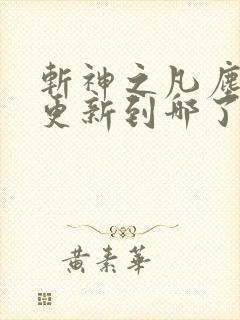 斬神之凡塵
更新到哪了
黃素華